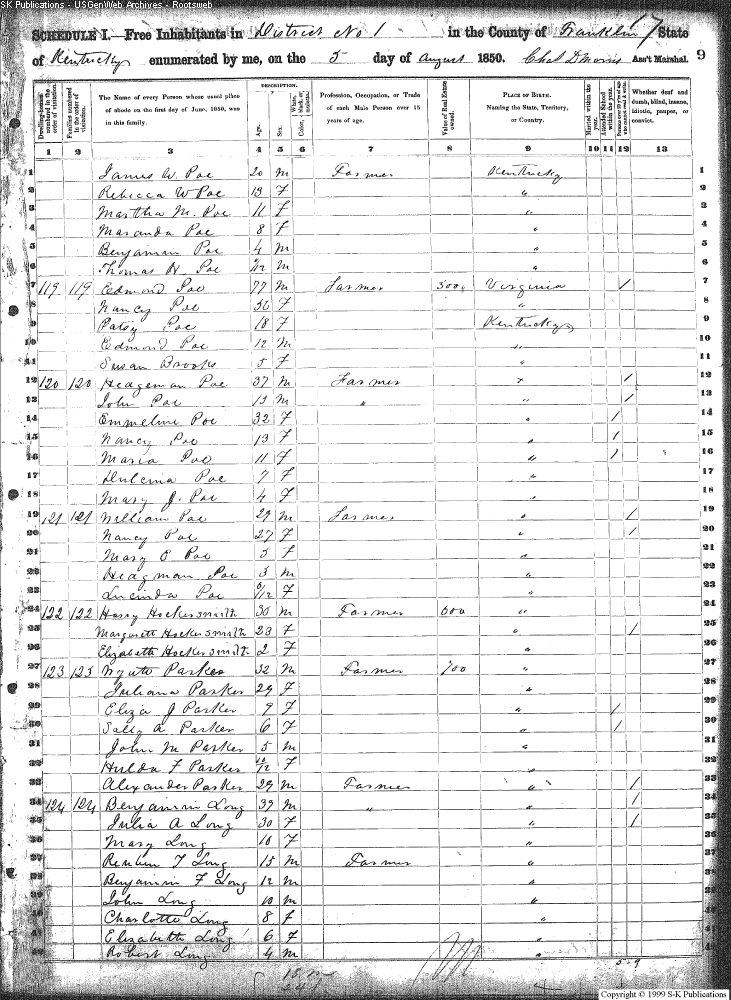 SK Publications - USGenWeb Archives - Rootsweb
SCHEDULE I.—Free Inhabitants in District No 1 in the County of Franklin State
of Kentucky enumerated by me, on the 5 day of August 1850. Chas D Morris Ass't Marshal. 9
DESCRIPTION.
Dwelling-houses numbered in the order of visitation. Families numbered in the order of visitation. The Name of every Person whose usual place of abode on the first day of June, 1850, was in this family. Age. Sex. Color, White, black, or mulatto. Profession, Occupation, or Trade of each Male Person over 15 years of age. Value of Real Estate owned. PLACE OF BIRTH. Naming the State, Territory, or Country. Married within the year. Attended School within the year. Persons over 20 y'rs of age who cannot read & write. Whether deaf and dumb, blind, insane, idiotic, pauper, or convict.
1 2 3 4 5 6 7 8 9 10 11 12 13
1 James W. Poe 20 m Farmer Kentucky 1
2 Rebecca W Poe 13 F " 2
3 Martha M. Poe 11 F " 3
4 Maranda Poe 8 F " 4
5 Benjamin Poe 4 m " 5
6 Thomas H. Poe /12 m " 6
7 119 119 Edmond Poe 77 m Farmer 500 Virginia / 7
8 Nancy Poe 56 F " 8
9 Patsy Poe 18 F Kentucky 9
10 Edmond Poe 12 m " 10
11 Susan Brooks 5 F " 11
12 120 120 Hedgeman Poe 37 m Farmer " / 12
13 John Poe 15 m " " / 13
14 Emmeline Poe 32 F " / 14
15 Nancy Poe 13 F " / 15
16 Maria Poe 11 F " / 16
17 Poe 7 F " 17
18 Mary J. Poe 4 F " 18
19 121 121 William Poe 29 m Farmer " / 19
20 Nancy Poe 27 F " / 20
21 Mary E Poe 5 F " 21
22 Hedgman Poe 3 m " 22
23 Lucinda Poe /12 F " 23
24 122 122 Harry Hockersmith 30 m Farmer 600 " 24
25 Margarett Hockersmith 23 F " / 25
26 Elizabeth Hockersmith 2 F " 26
27 123 123 Wyatt Parker 32 m Farmer 700 " 27
28 Juliana Parker 29 F " 28
29 Eliza J Parker 9 F " / 29
30 Sally A Parker 6 F " / 30
31 John M Parker 5 m " 31
32 Hulda F Parker /12 F " 32
33 Alexander Parker 29 m Farmer " / 33
34 124 124 Benjamin Long 39 m " " / 34
35 Julia A Long 30 F " / 35
36 Mary Long 16 F " 36
37 Reuben T Long 15 m Farmer " 37
38 Benjamin F Long 12 m " 38
39 John Long 10 m " 39
40 Charlotte Long 8 F " 40
41 Elizabeth Long 6 F " 41
42 Robert Long 4 m " 42
Copyright © 1999 S-K Publications